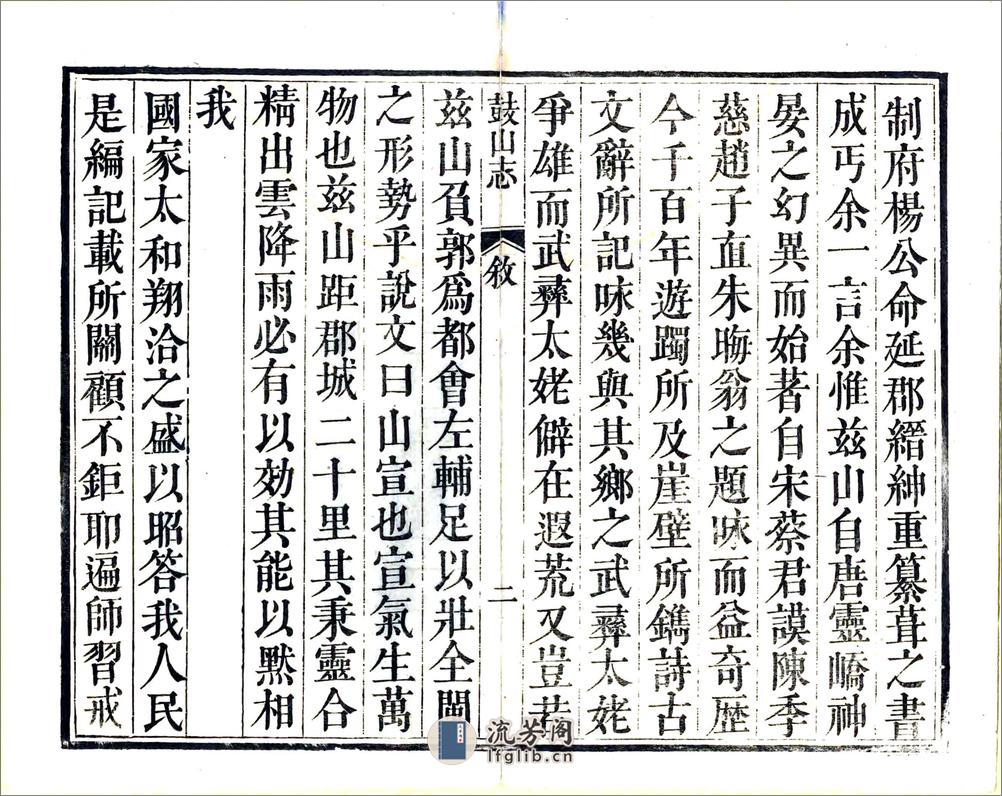 制府楊公命延郡縉紳重纂葺之書
成丐余一言余惟茲山自唐靈嶠神
晏之幻異而始著自宋蔡君謨陳季
慈趙子直朱晦翁之題咏而益奇歴
今千百年遊躅所及崖壁所鐫詩古
文辭所記咏幾與其鄉之武彝太姥
爭雄而武彝太姥僻在遐荒又豈若
鼓山志
敘
二
茲山負郭爲都會左輔足以壯全閩
之形勢乎說文曰山宣也宣氣生萬
物也茲山距郡城二十里其秉靈合
精出雲降雨必有以効其能以默相
我
國家太和翔洽之盛以昭答我人民
是編記載所關顧不鉅耶遍師習戒
流芳阁
lfglib.cn